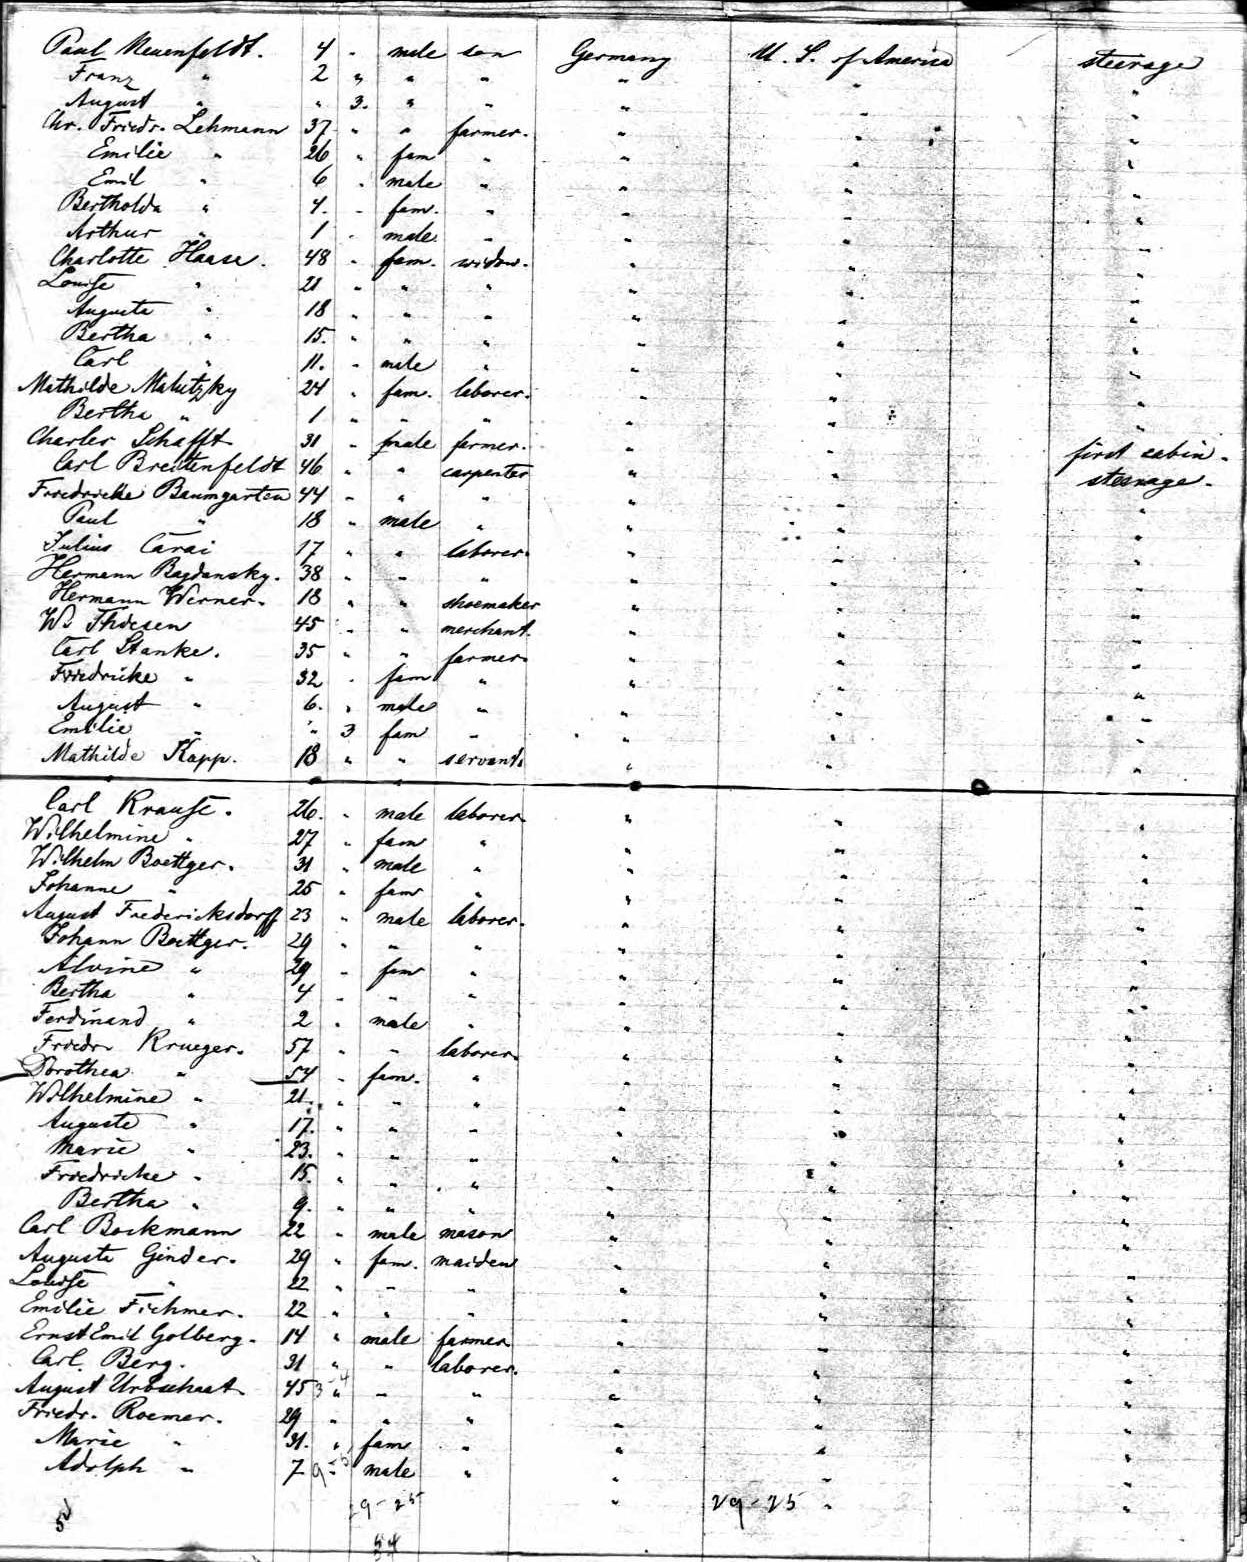 Paul Neuenfeldt. 4 - male son Germany U. S. of America steerage
Franz " 2 " " " " " "
August " " 3. " " " " "
Chr. Friedr. Lehmann 37 " " farmer. " " "
Emilie " 26 " fem " " " "
Emil " 6 " male " " " "
Bertholda " 4. - fem. " " " "
Arthur " 1 - male " " " "
Charlotte Haase. 48 - fem. widow. " " "
Louise " 21 " " " " " "
Auguste " 18 " " " " " "
Bertha " 15. " " " " " "
Carl " 11. - male " " " "
Mathilde Malutzky 24 " fem. laborer. " " "
Bertha " 1 " " " " " "
Charles Schafft 31 - male farmer. " " first cabin.
Carl Breitenfeldt 46 " " carpenter " " steerage.
Friedricke Baumgarten 44 - " " " " "
Paul " 18 " male " " " "
Julius Carai 17 " " laborer. " " "
Hermann Bagdansky. 38 " " " " " "
Hermann Werner. 18 " " shoemaker " " "
W. Thiesen 45 - " merchant. " " "
Carl Stanke. 35 " " farmer. " " "
Friedricke " 32 - fem " " " "
August " 6. " male " " " "
Emilie " " 3 fem " " " "
Mathilde Kapp. 18 " " servant. " " "
Carl Krause. 26. " male laborer. " " "
Wilhelmine " 27 " fem " " " "
Wilhelm Boettger. 31 " male " " " "
Johanne " 25 " fem " " " "
August Fredericksdorff 23 " male laborer. " " "
Johann Boettger. 29 " " " " " "
Alvine " 29 - fem " " " "
Bertha " 4 - " " " " "
Ferdinand " 2 " male " " " "
Friedr. Krueger. 57 " " laborer. " " "
Dorothea " 54 - fem. " " " "
Wilhelmine " 21. " " " " " "
Auguste " 17. " " " " " "
Marie " 23. " " " " " "
Friedricke " 15. " " " " " "
Bertha " 9. " " " " " "
Carl Bockmann 22 " male mason " " "
Auguste Ginder. 29 " fem. maiden " " "
Louise " 22 " " " " " "
Emilie Fichmer. 22 " " " " " "
Ernst Emil Golberg. 14 " male farmer " " "
Carl. Berg. 31 " " laborer. " " "
August Urbschaat 45 " " " " " "
Friedr. Roemer. 29 " " " " " "
Marie " 31. " fem " " " "
Adolph " 7 male " " " "
29-25 " 29-25 " "
54